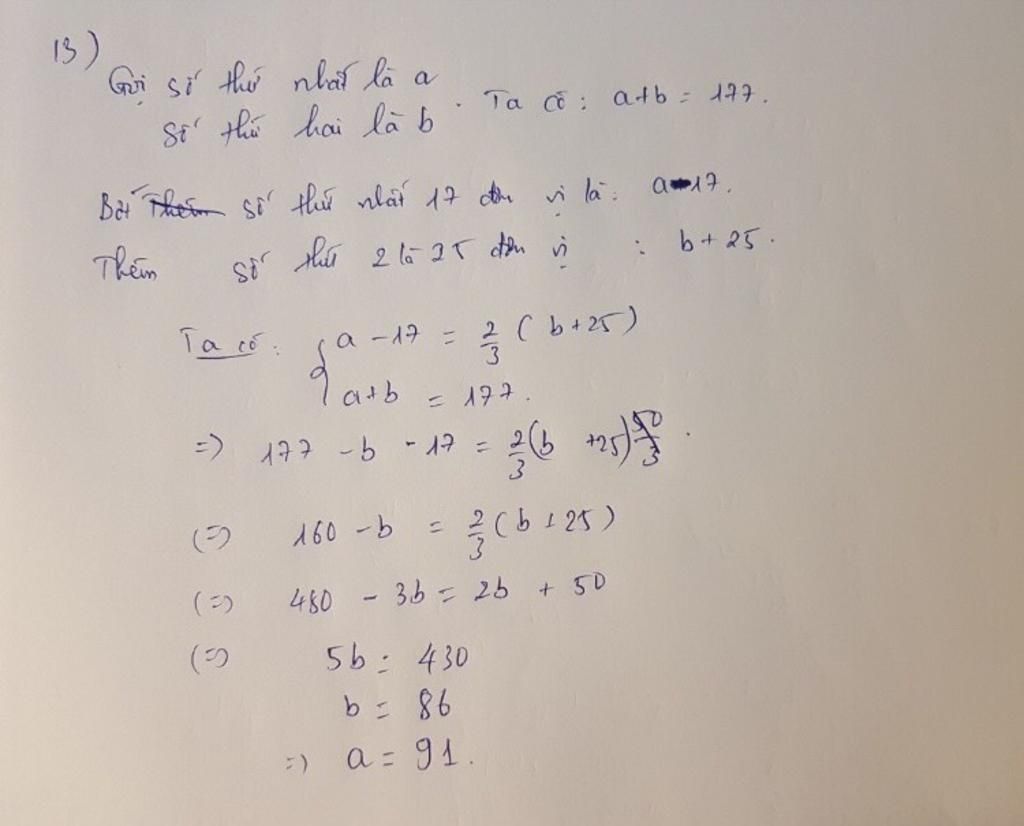 13)
Gọi số thứ nhất là a
số thứ hai là b. Ta có: a+b = 177.
Bớt Thêm số thứ nhất 17 đơn vị là: a-17.
Thêm số thứ 2 là 25 đơn vị : b + 25.
Ta có: { a - 17 = 2/3 ( b+25)
a+b = 177.
=) 177 - b - 17 = 2/3 (b +25) 50/3.
(=) 160 - b = 2/3 ( b + 25)
(=) 480 - 3b = 2b + 50
(=) 5b = 430
b = 86
=) a = 91.